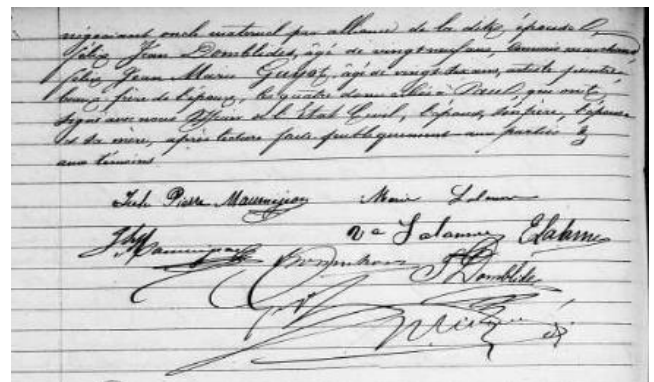 négociant oncle maternel par alliance de la dite épouse
félix Jean Domblides, âgé de vingt neuf ans, commis marchand
félix Jean Marie âgé de vingt deux ans, artiste peintre,
beau frère de l'époux, les quatre domiciliés à qui ont
signé avec nous Officier de l'Etat Civil, l'époux, son père, l'épouse
et sa mère, après lecture faite publiquement aux parties &
aux témoins
Jph Pierre Maumejean Marie Lalanne
Jh Maumejean Va Lalanne E Lalanne
J Domblides